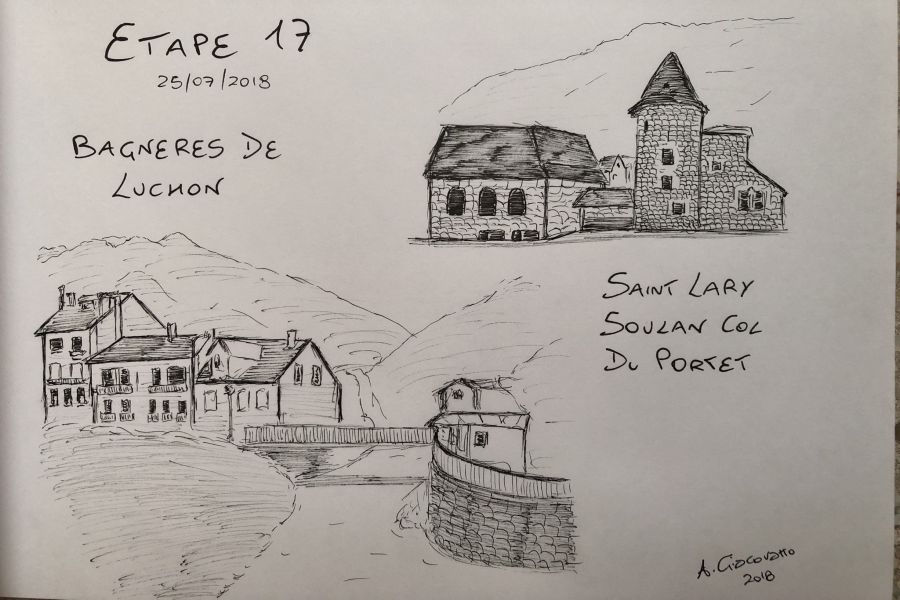 ETAPE 17
25/07/2018
BAGNERES DE
LUCHON
SAINT LARY
SOULAN COL
DU PORTET
A. Giacovatto
2018